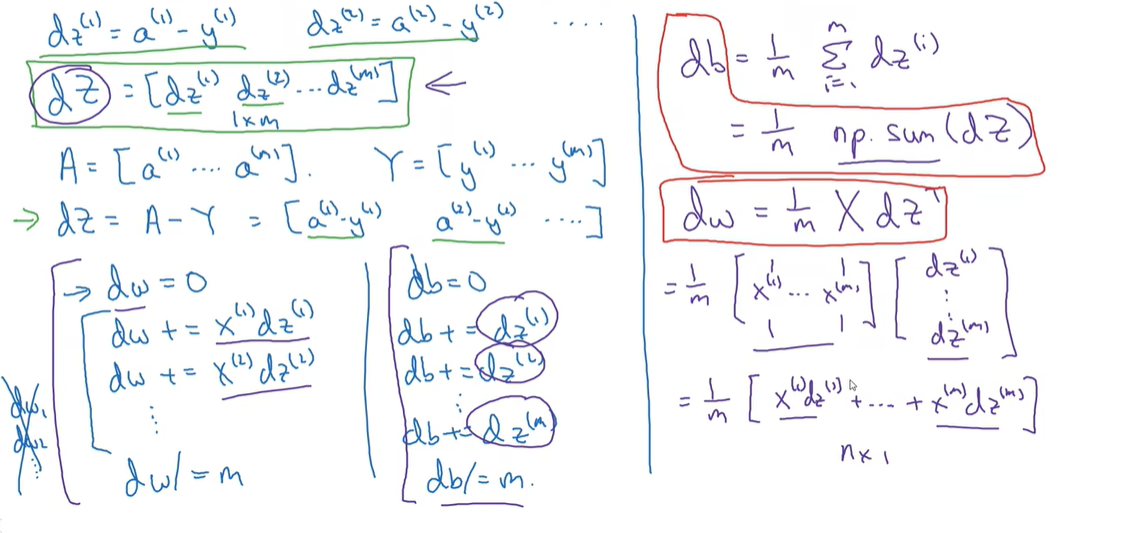 dz⁽¹⁾ = a⁽¹⁾ - y⁽¹⁾ dz⁽²⁾ = a⁽²⁾ - y⁽²⁾ ....
dZ = [dz⁽¹⁾ dz⁽²⁾ ... dz⁽ᵐ⁾] ←
1×m
A = [a⁽¹⁾ .... a⁽ᵐ⁾]. Y = [y⁽¹⁾ ... y⁽ᵐ⁾]
→ dZ = A - Y = [a⁽¹⁾-y⁽¹⁾ a⁽²⁾-y⁽²⁾ ....]
→ dw = 0
dw += x⁽¹⁾dz⁽¹⁾
dw += x⁽²⁾dz⁽²⁾
⋮
dw/= m
dw₁
dw₂
⋮
db = 0
db += dz⁽¹⁾
db += dz⁽²⁾
⋮
db += dz⁽ᵐ⁾
db/= m.
db = 1/m Σᵢ₌₁ᵐ dz⁽ⁱ⁾
= 1/m np.sum(dZ)
dw = 1/m X dZᵀ
= 1/m [x⁽¹⁾ ... x⁽ᵐ⁾] [dz⁽¹⁾ ⋮ dz⁽ᵐ⁾]
= 1/m [x⁽¹⁾dz⁽¹⁾ + .... + x⁽ᵐ⁾dz⁽ᵐ⁾]
n×1